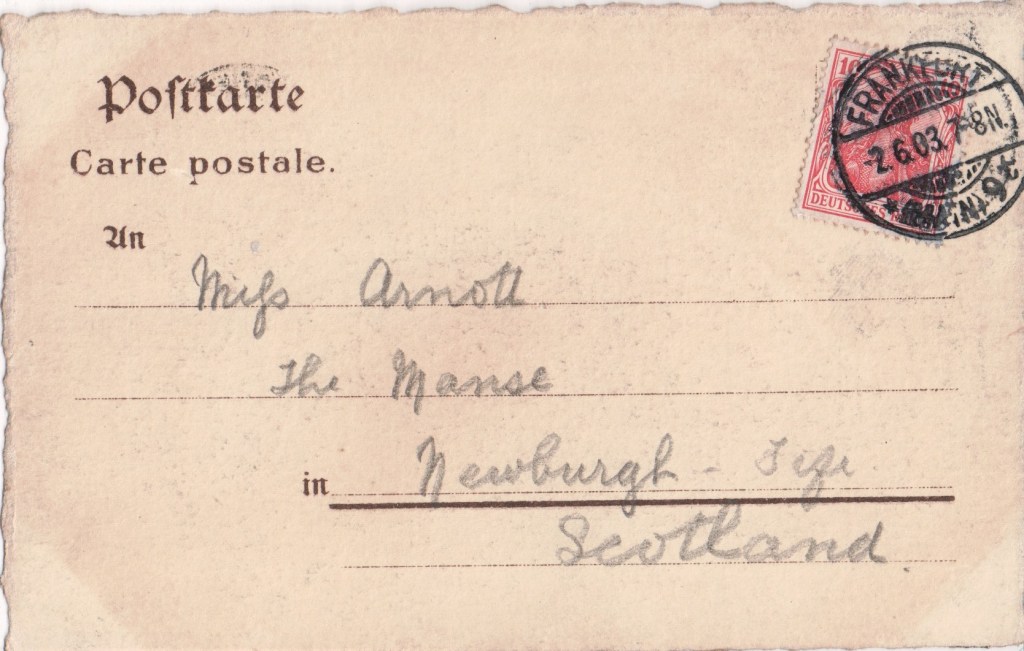 Postkarte
Carte postale.
An
Miss Arnott
The Manse
in Newburgh - Fife
Scotland
10
DEUTSCHES
FRANKFURT
2.6.03. 7-8N.
*9*